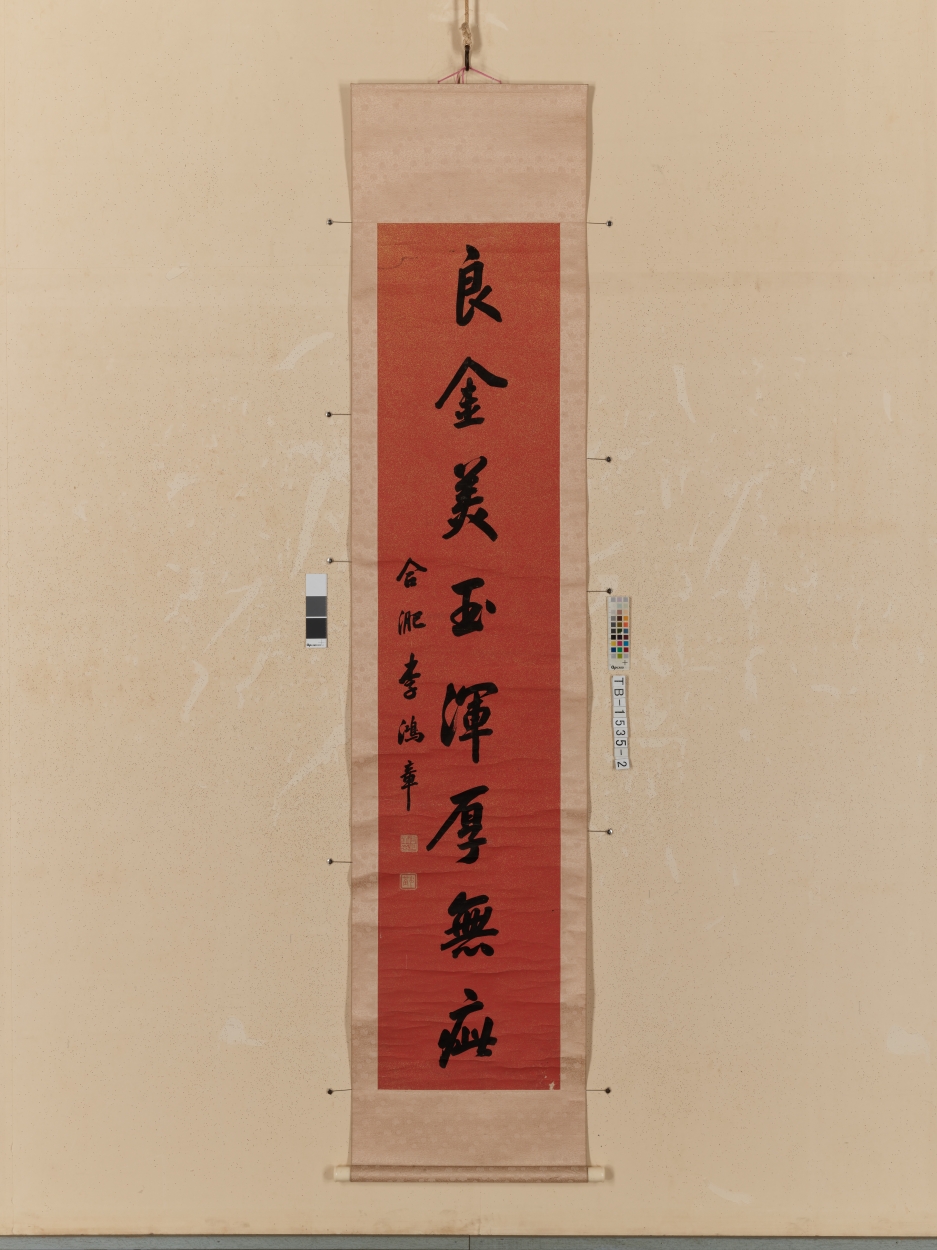 良金美玉渾厚無疵
合淝李鴻章
TB-1535-2